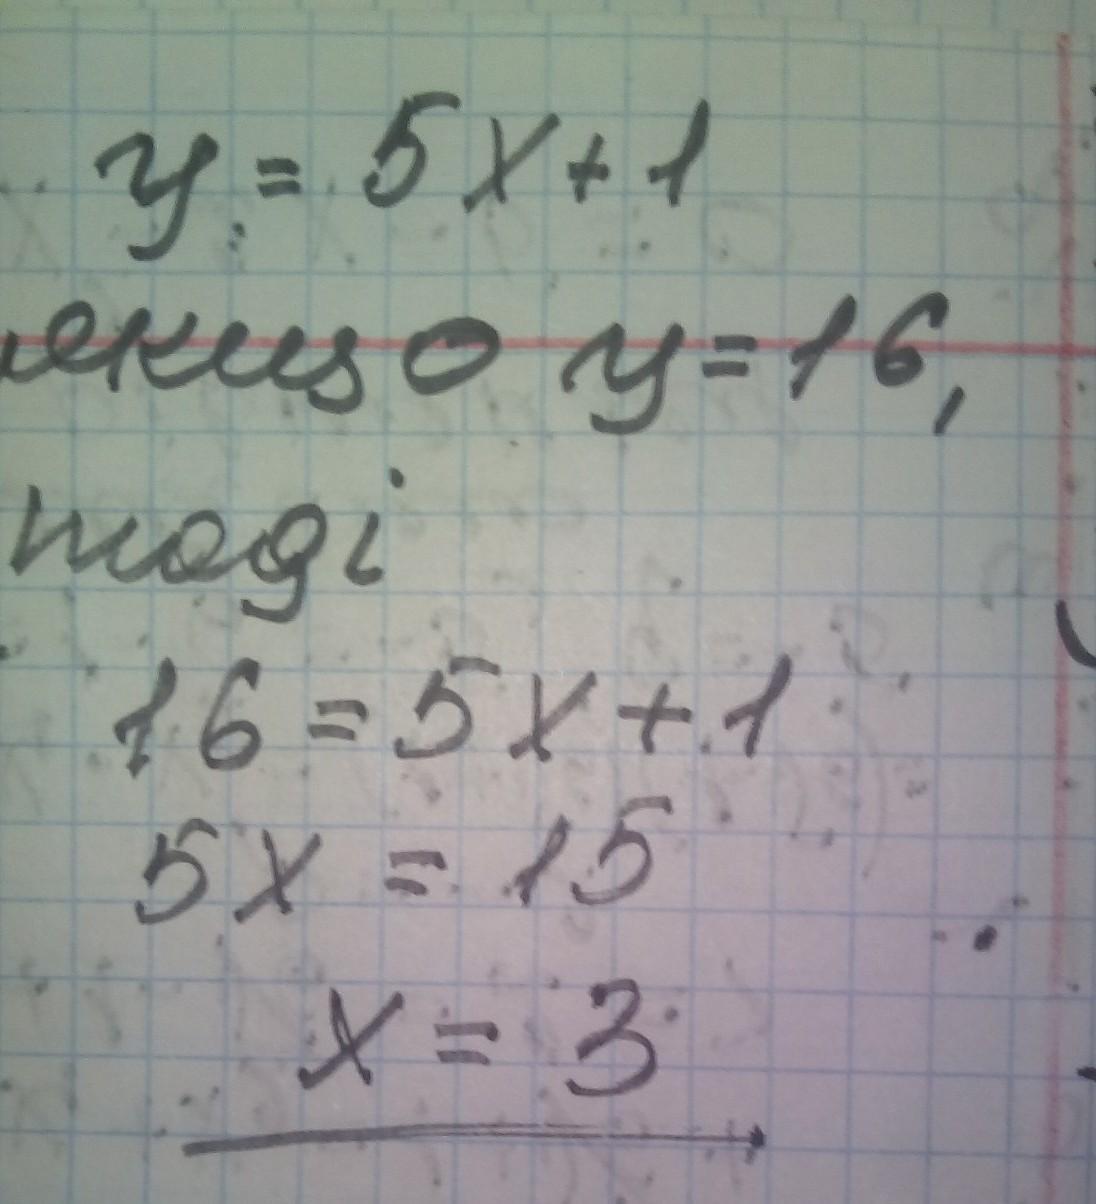 y = 5x + 1
якщо y = 16,
тоді
16 = 5x + 1
5x = 15
x = 3